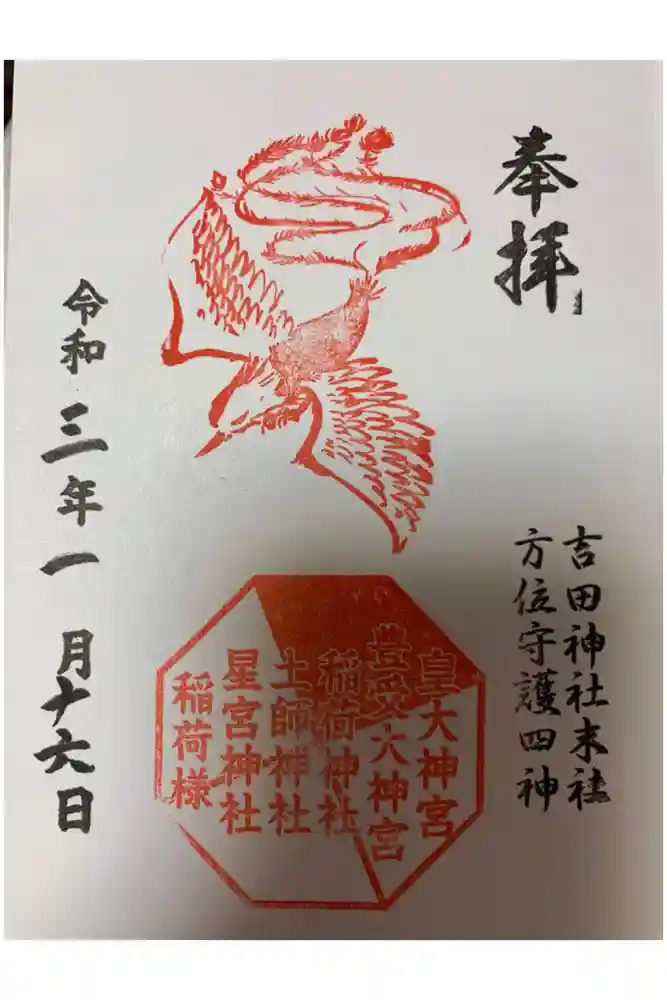 奉拝
吉田神社末社
方位守護四神
皇大神宮
豊受大神宮
稲荷神社
土師神社
星宮神社
稲荷様
令和三年一月十六日